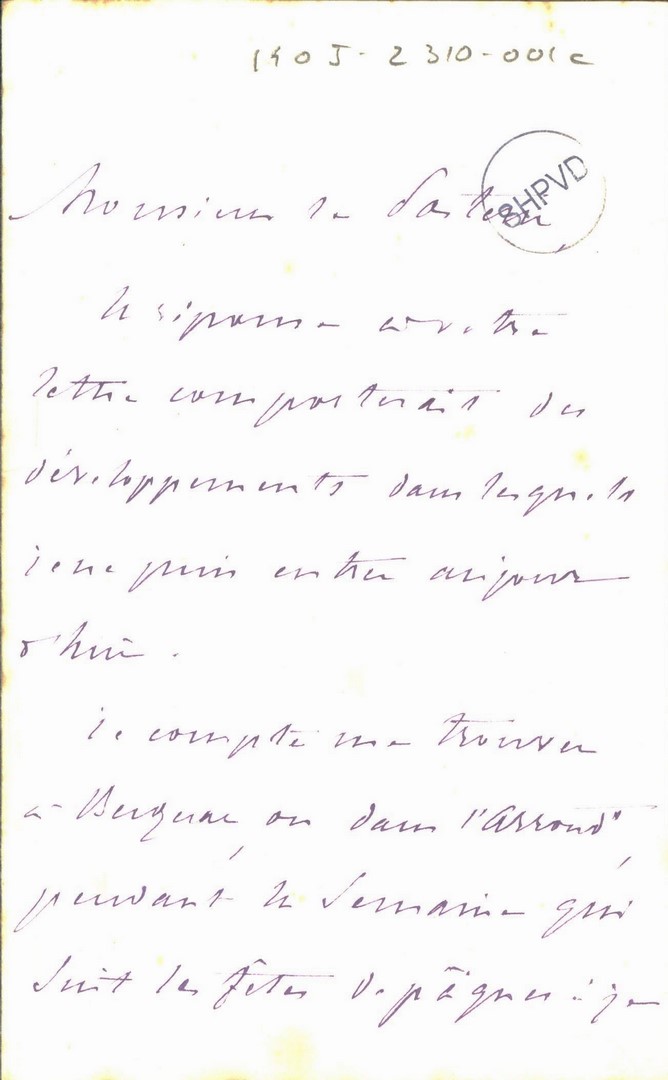 1905-2310-001c
BHPVD
Monsieur le Pasteur,
la réponse à votre
lettre comporterait des
développements dans lesquels
je ne puis entrer aujour
d'hui.
Je compte me trouver
à Bergerac, ou dans l'Arrondt,
pendant la Semaine qui
Suit les fêtes de pâques : je